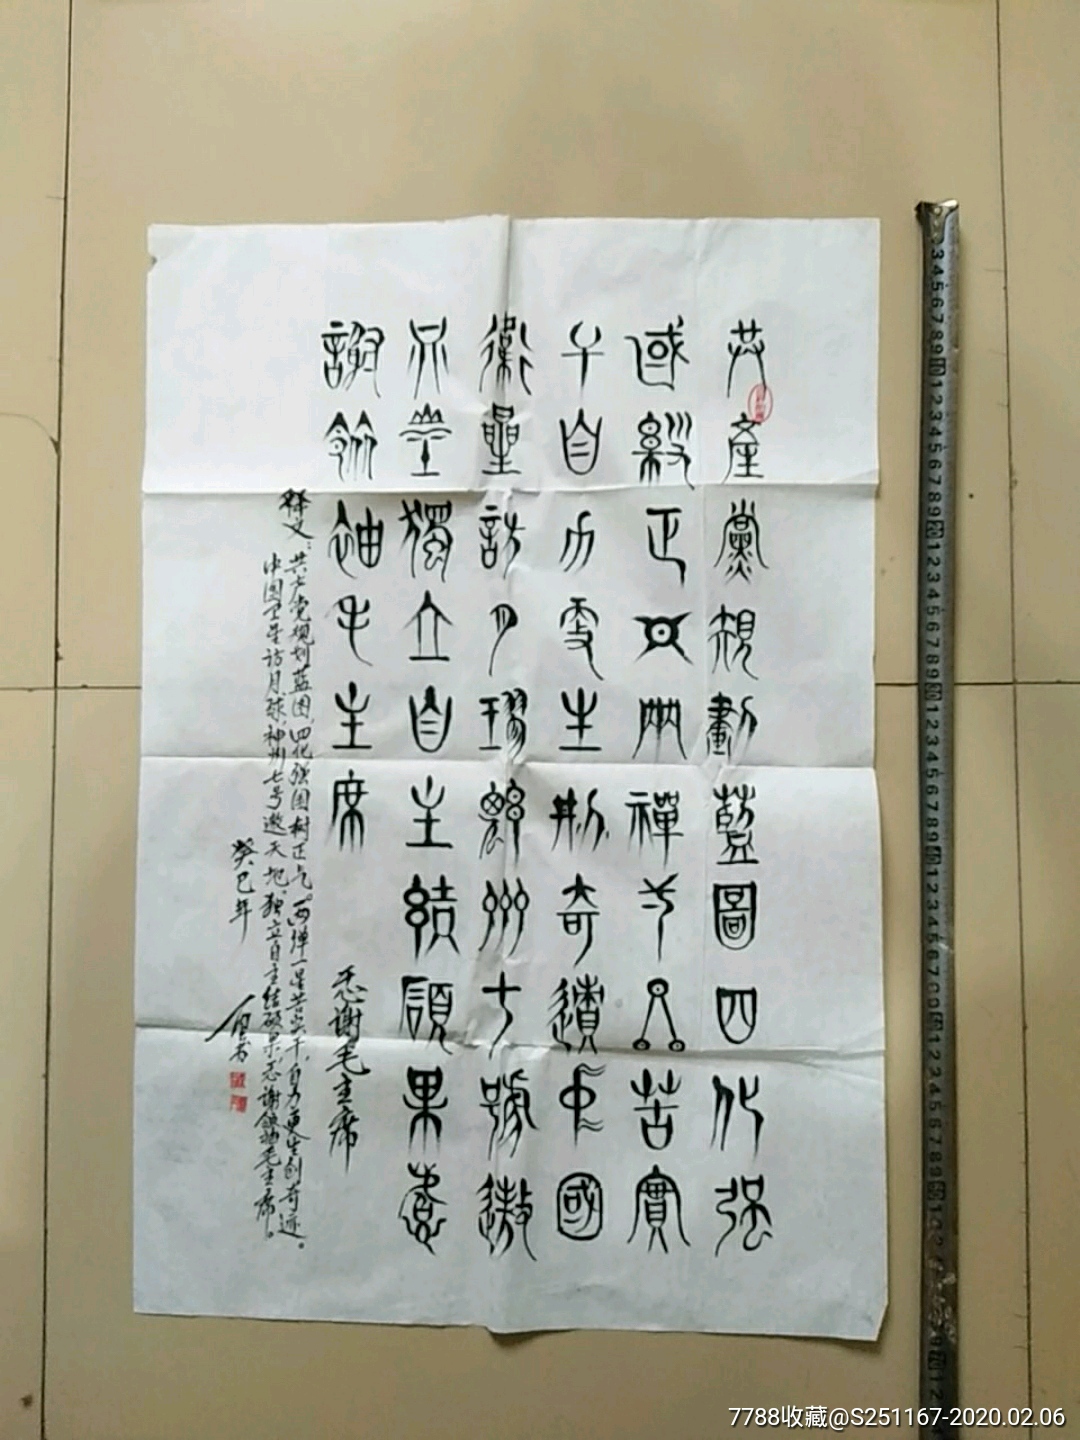 共產黨規劃藍圖四化强
國樹正气兩彈一星苦實
干自力更生創奇蹟中國
衛星訪月球神州七號遨
天地獨立自主結碩果忘
謝領袖毛主席
忘谢毛主席
释文：
共产党规划蓝图，四化强国树正气。两弹一星苦实干，自力更生创奇迹。
中国卫星访月球，神州七号遨天地。独立自主结硕果，忘谢领袖毛主席。
癸巳年
7788收藏@S251167-2020.02.06